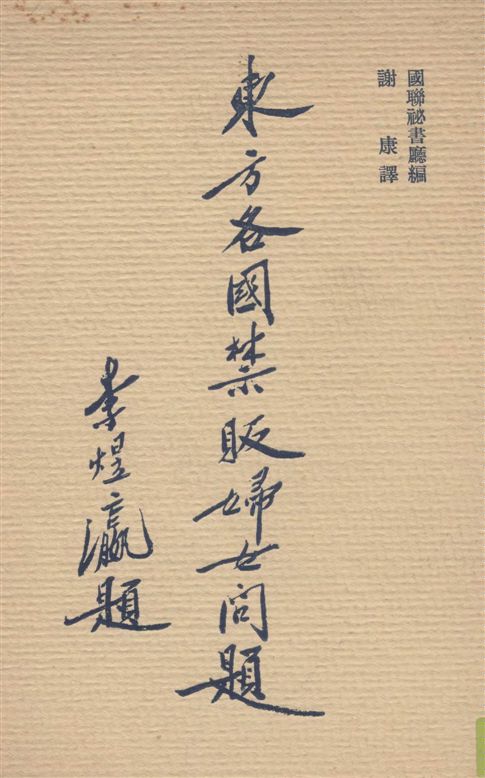 國聯祕書廳編
謝康譯
東方各國禁販婦女問題
李煜瀛題